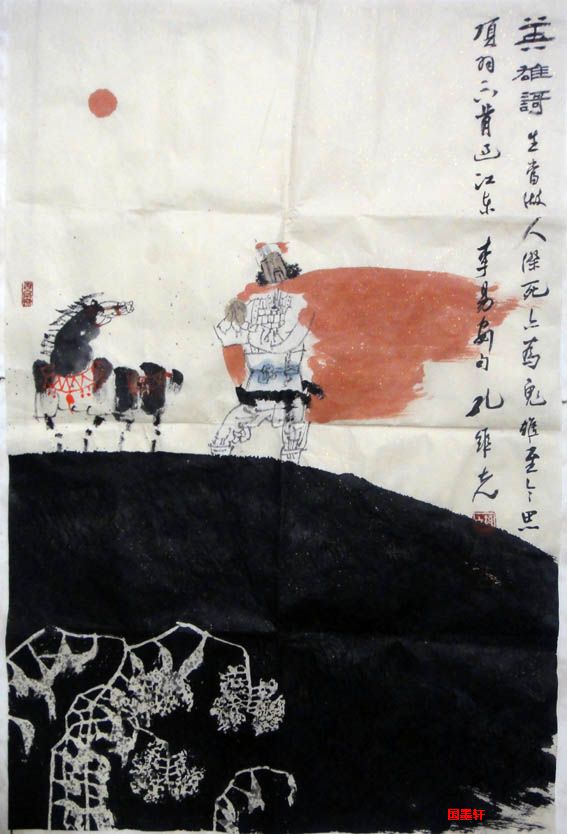 英雄謌 生當做人傑死亦為鬼雄至今思
項羽不肯過江東 李易安句 孔維克
国墨轩